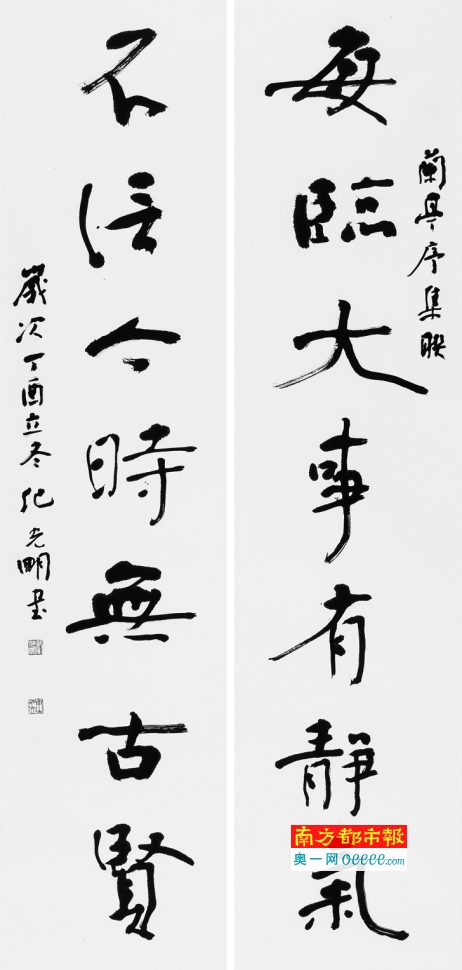 蘭亭序集联
每臨大事有靜氣
不信今時無古賢
歲次丁酉立冬紀光明書
南方都市報
奥一网 oeeee.com